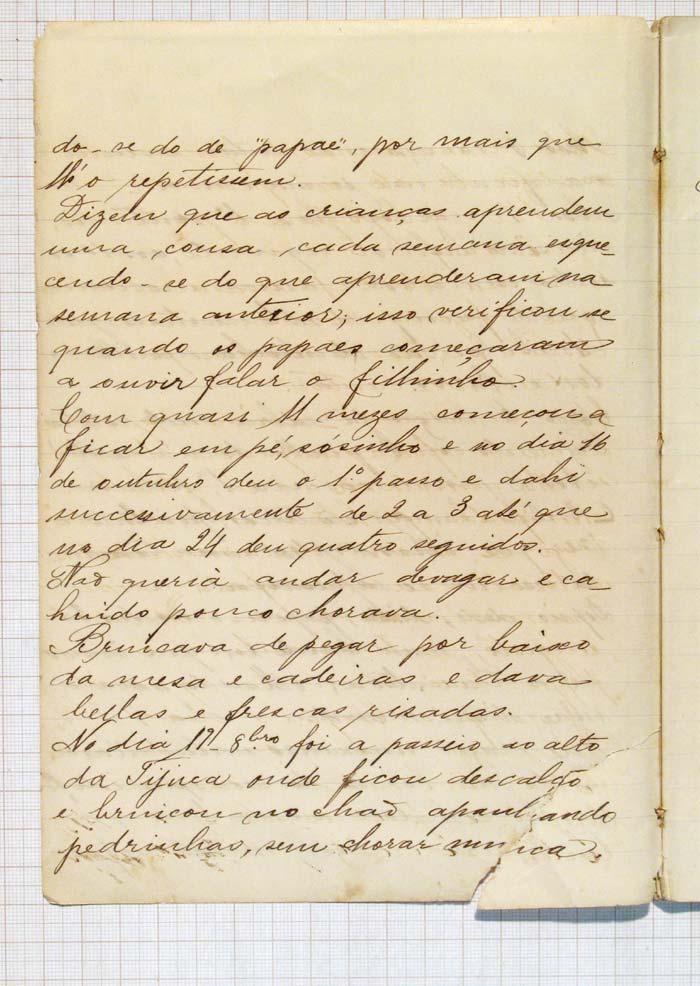 do-se do de "papae", por mais que
lh'o repetissem.
Dizem que as crianças aprendem
uma cousa cada semana esque-
cendo-se do que aprenderam na
semana anterior; isso verificou se
quando os papaes começaram
a ouvir falar o filhinho.
Com quasi 11 mezes começou a
ficar em pé, sósinho e no dia 16
de outubro deu o 1º passo e dahi
successivamente de 2 a 3 até que
no dia 24 deu quatro seguidos.
Não queria andar devagar e ca-
huido pouco chorava.
Brincava de pegar por baixo
da mesa e cadeiras e dava
bellas e frescas risadas.
No dia 17-8bro foi a passeio ao alto
da Tijuca onde ficou descalço
e brincou no chaõ apanhando
pedrinhas, sem chorar nunca.